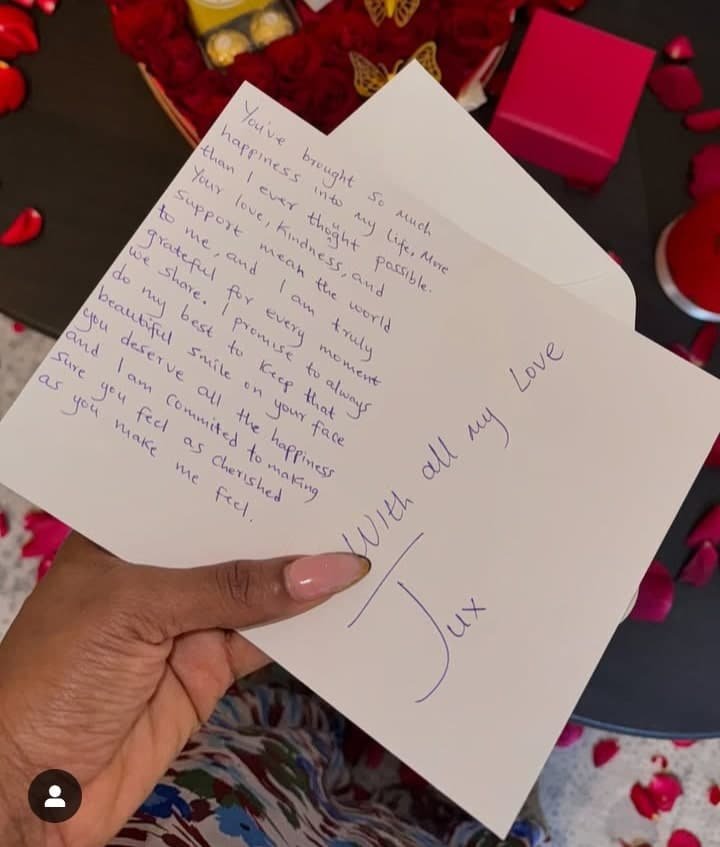 You've brought so much
happiness into my life, More
than I ever thought possible.
Your love, Kindness, and
support mean the world
to me, and I am truly
grateful for every moment
we share. I promise to always
do my best to Keep that
beautiful smile on your face
you deserve all the happiness
and I am Commited to making
sure you feel as cherished
as you make me feel.
With all my Love
Jux